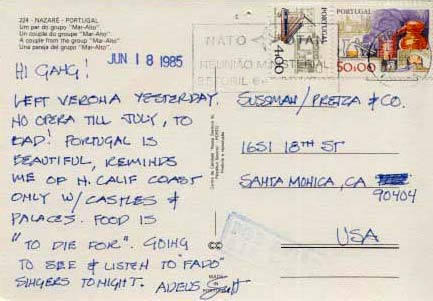 224 - NAZARÉ - PORTUGAL
Um par do grupo "Mar-Alto".
Un couple du groupe "Mar-Alto".
A couple from the group "Mar-Alto".
Una pareja del grupo "Mar-Alto".
JUN 18 1985
HI GANG!
LEFT VERONA YESTERDAY.
NO OPERA TILL JULY, TO
BAD! PORTUGAL IS
BEAUTIFUL, REMINDS
ME OF N. CALIF COAST
ONLY W/ CASTLES &
PALACES. FOOD IS
"TO DIE FOR". GOING
TO SEE & LISTEN TO "FADO"
SINGERS TONIGHT. ADEUS
MADE IN PORTUGAL
NATO OTAN
REUNIÃO MINISTERIAL
PORTUGAL
4$00
PORTUGAL
50$00
SUSSMAN/PREJZA & CO.
1651 18TH ST
SANTA MONICA, CA
90404
USA